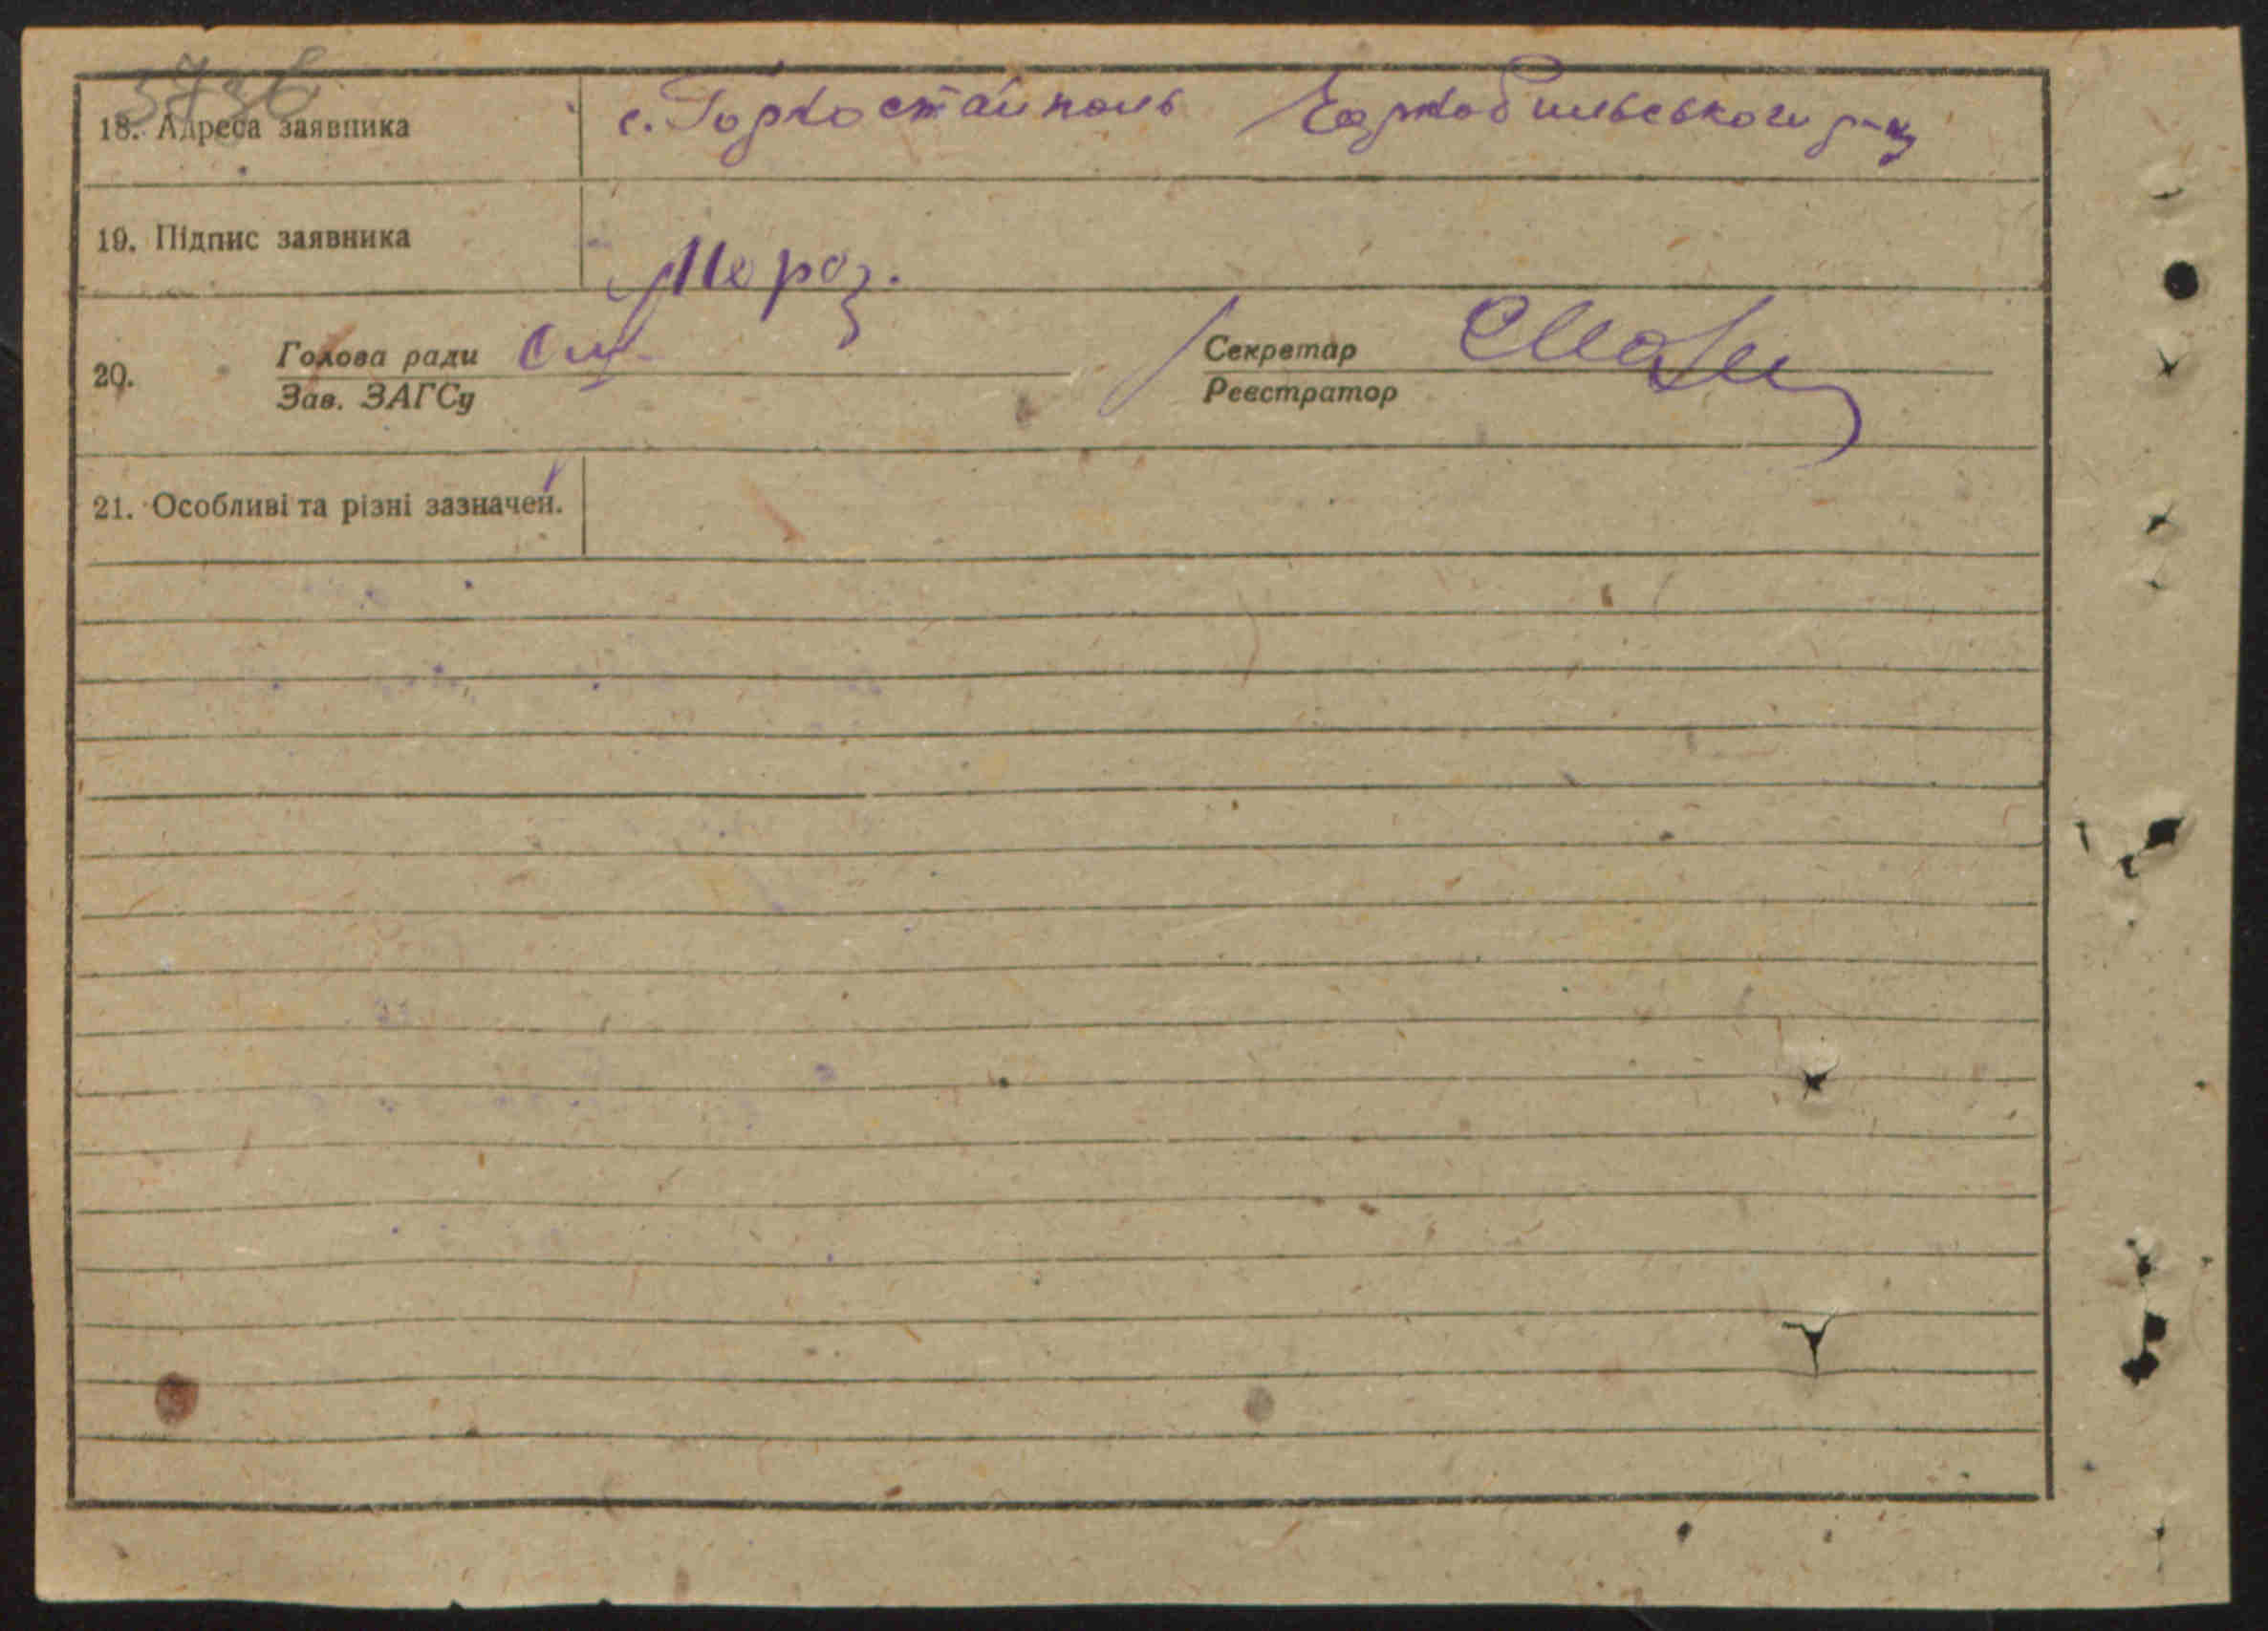 3736
18. Адреса заявника с. Горностайполь Чорнобильського р-ну
19. Підпис заявника Мороз.
20. Голова ради
Зав. ЗАГСу
Секретар
Реєстратор
21. Особливі та різні зазначен.